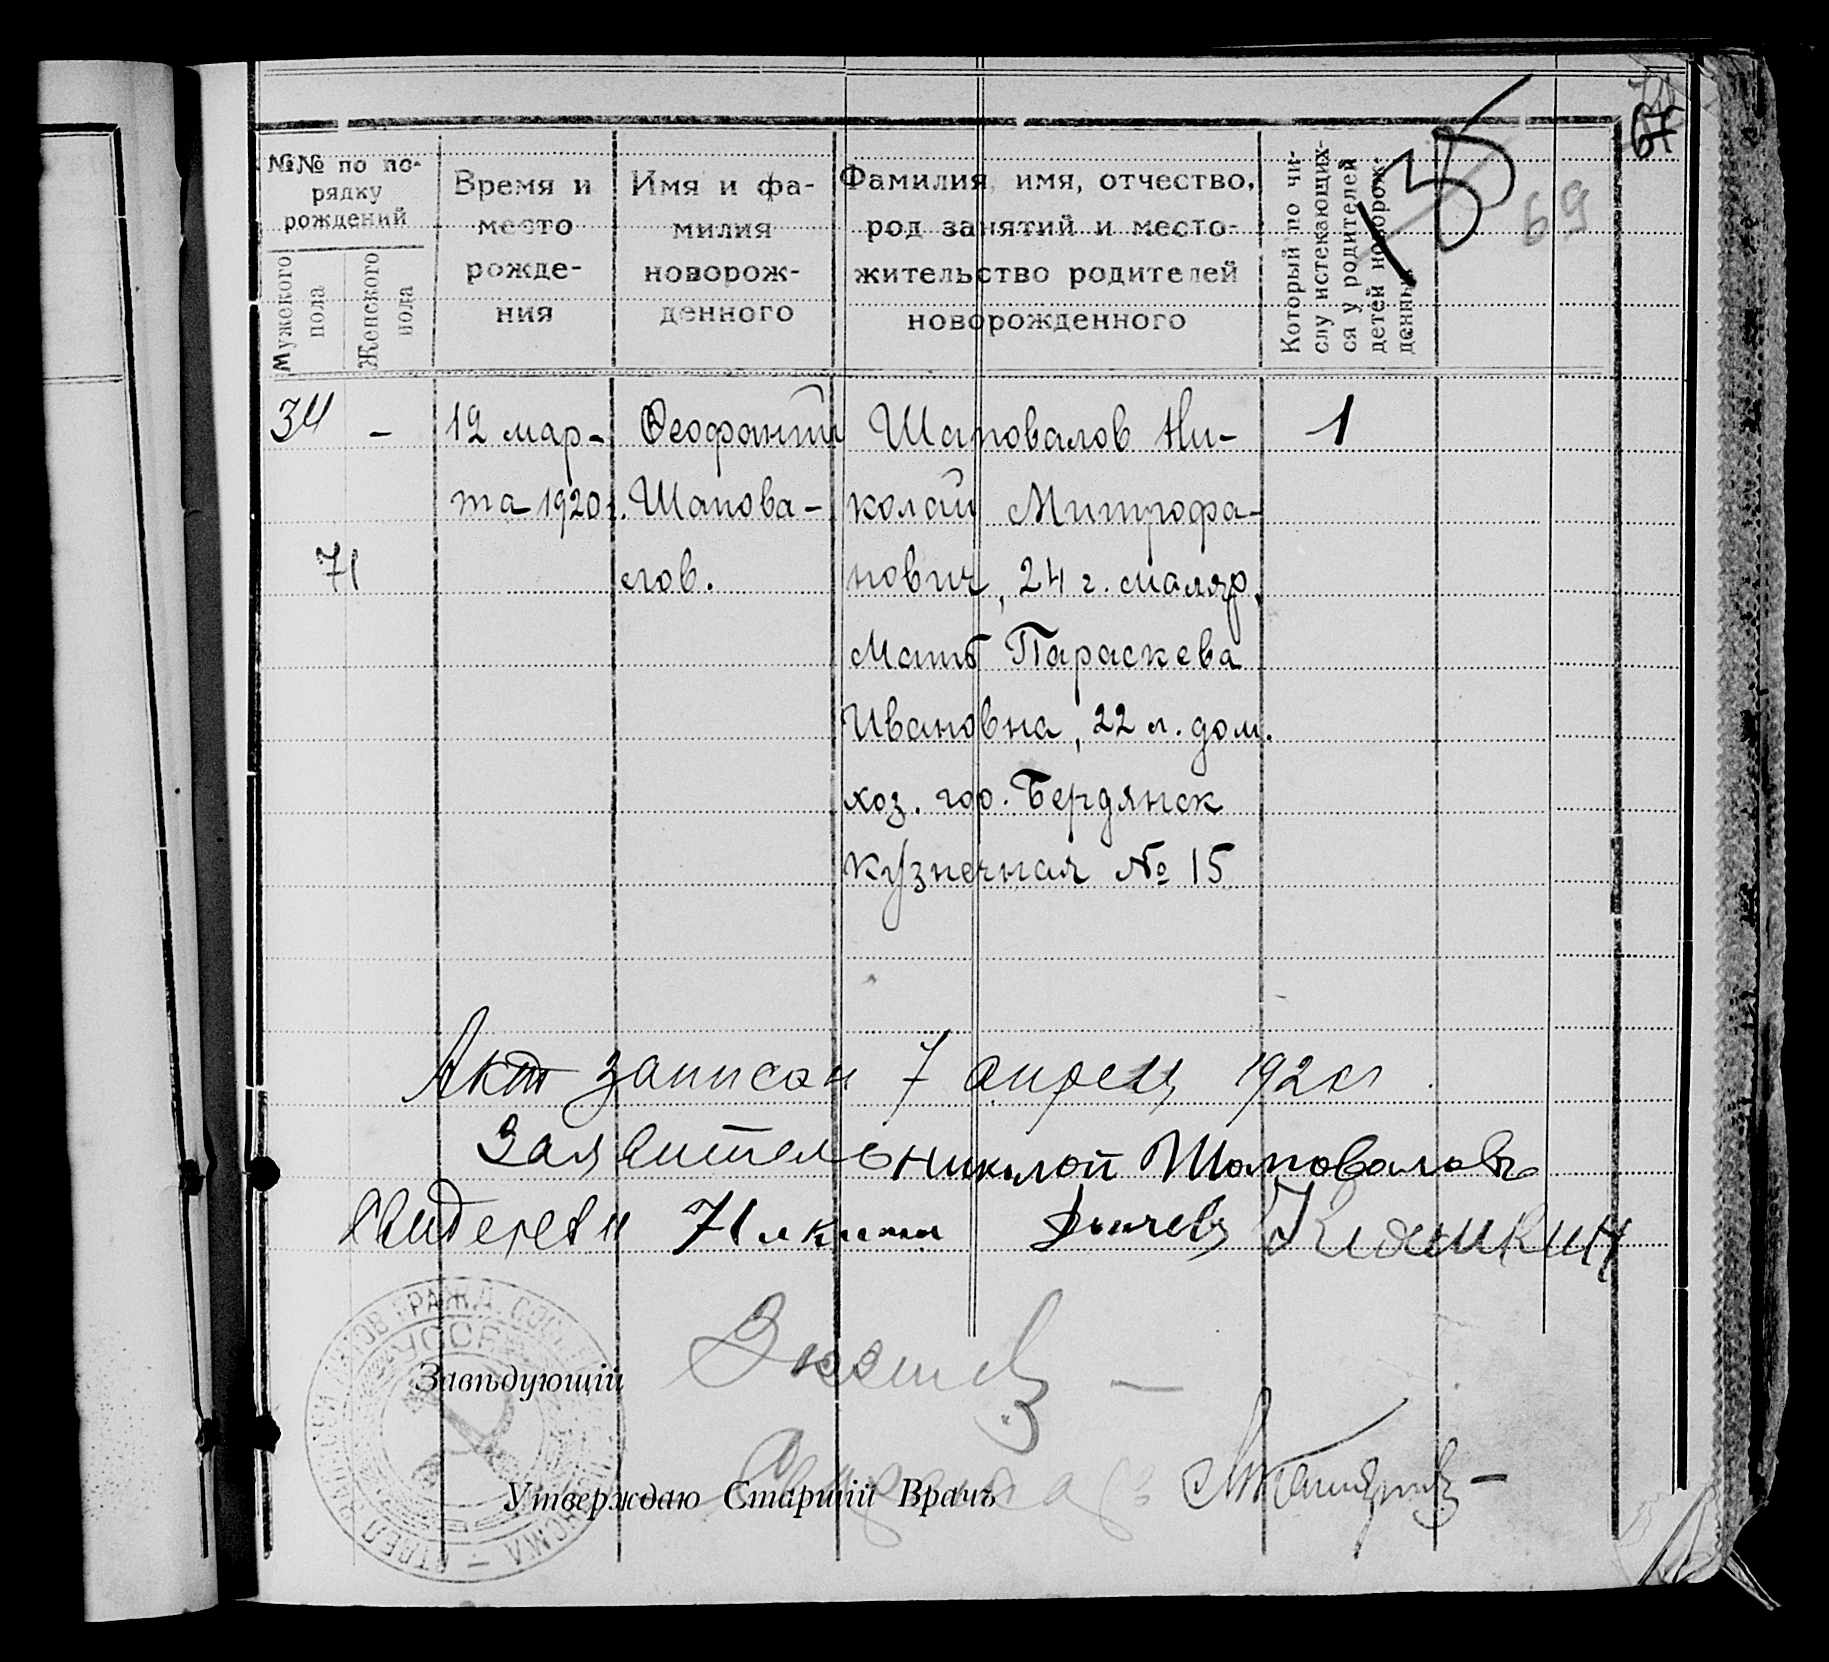 67
69
№№ по по-
рядку
рождений
Мужеского
пола
Женского
пола
Время и
место
рожде-
ния
Имя и фа-
милия
новорож-
денного
Фамилия, имя, отчество,
род занятий и место-
жительство родителей
новорожденного
Который по чи-
слу истекающих-
ся у родителей
детей новорож-
данный
34 -
71
12 мар-
та 1920 г.
Феофантий
Шапова-
лов.
Шаповалов Ни-
колай Митрофа-
нович, 24 г. маляр,
Мать Параскева
Ивановна, 22 л. дом.
хоз. гор. Бердянск
Кузнечная № 15
1
Акт записан 7 апреля 1920 г
Заявитель Николай Шаповаловъ
Свидетели
Завѣдующій
Утверждаю Старшій Врачъ
УССР